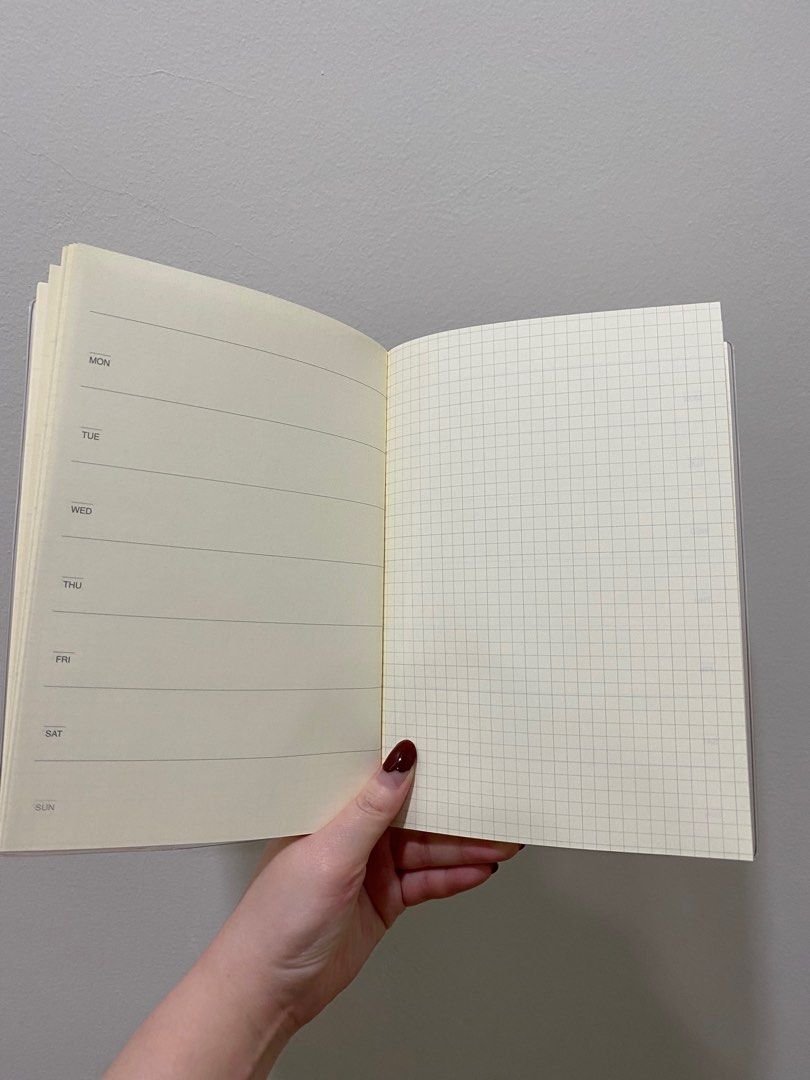 MON
TUE
WED
THU
FRI
SAT
SUN